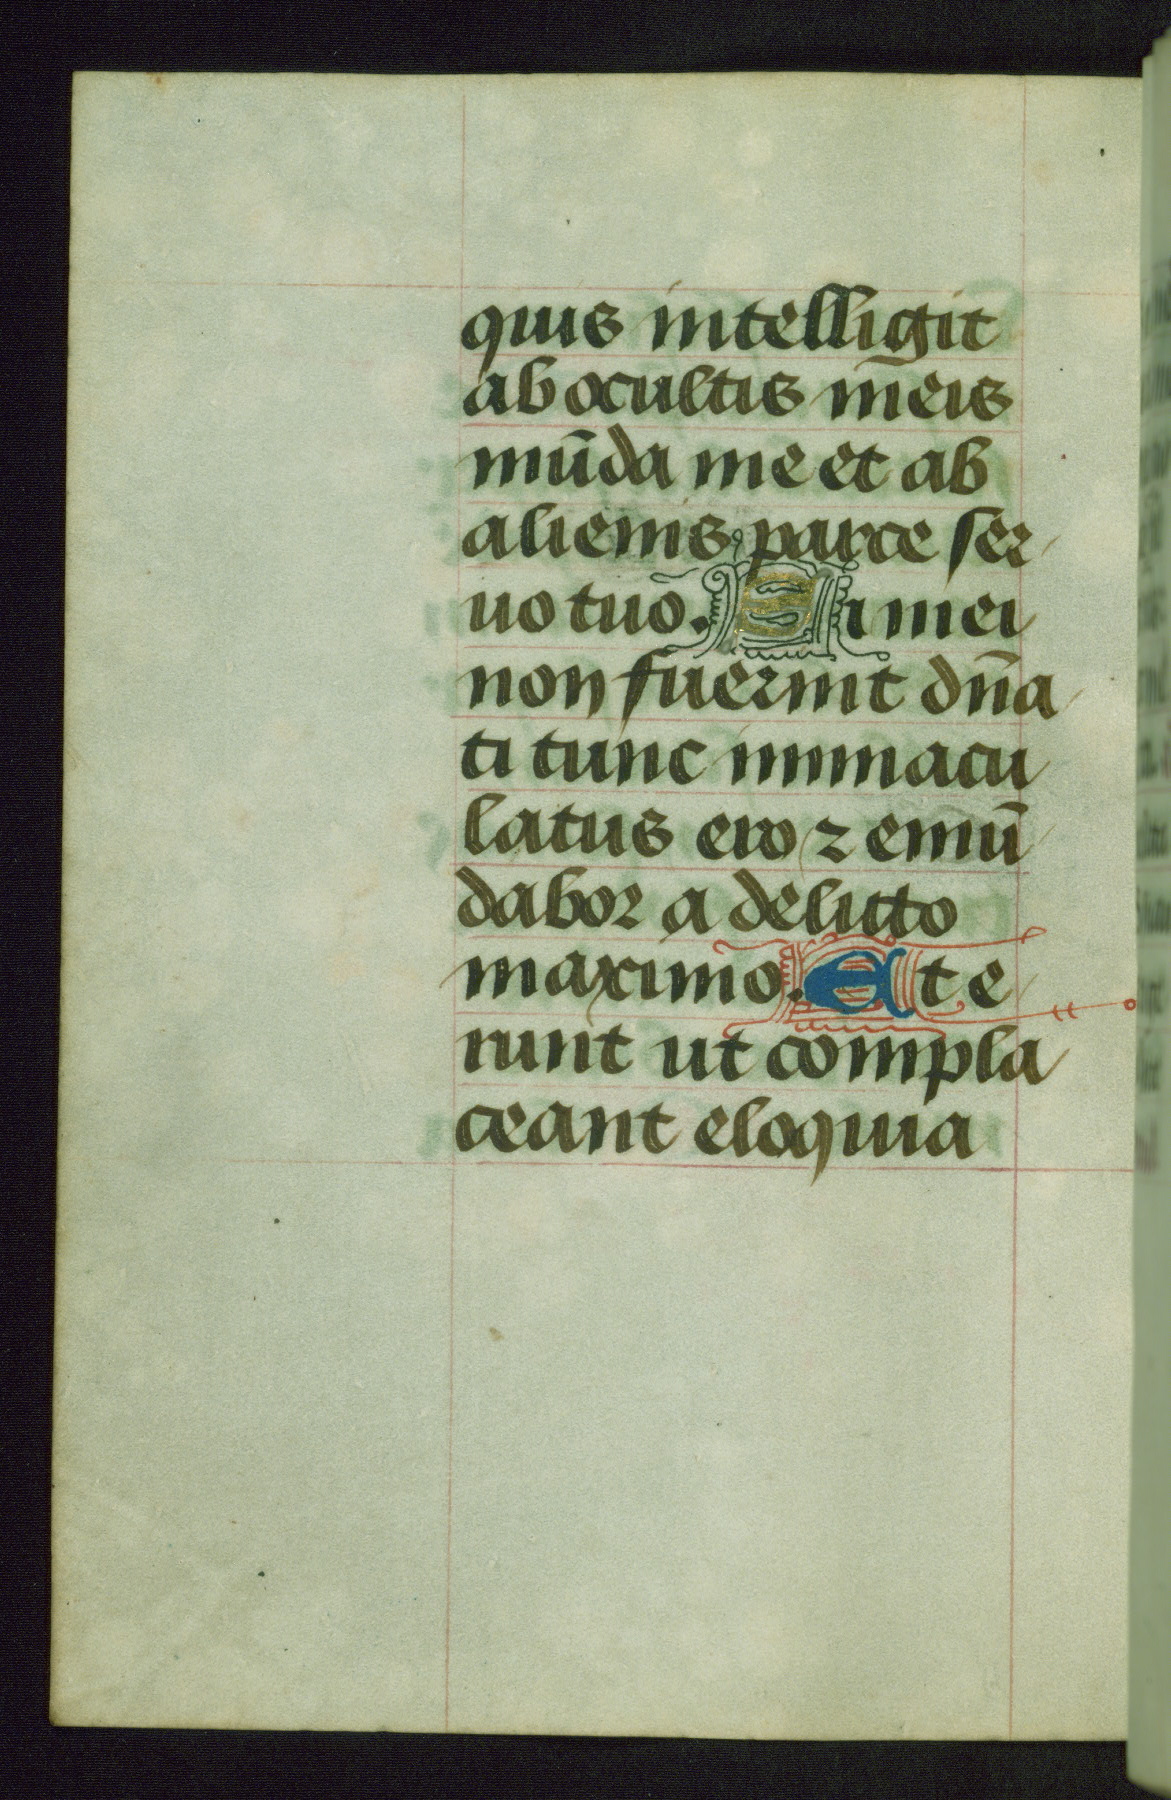 quis intelligit
ab ocultis m̄eis
mūda me et ab
alienis parce ser
uo tuo. Si mei
non fuerint dn̄a
ti tunc immacu
latus ero ⁊ emū
dabor a delicto
maximo. Et e
runt ut compla
ceant eloquia